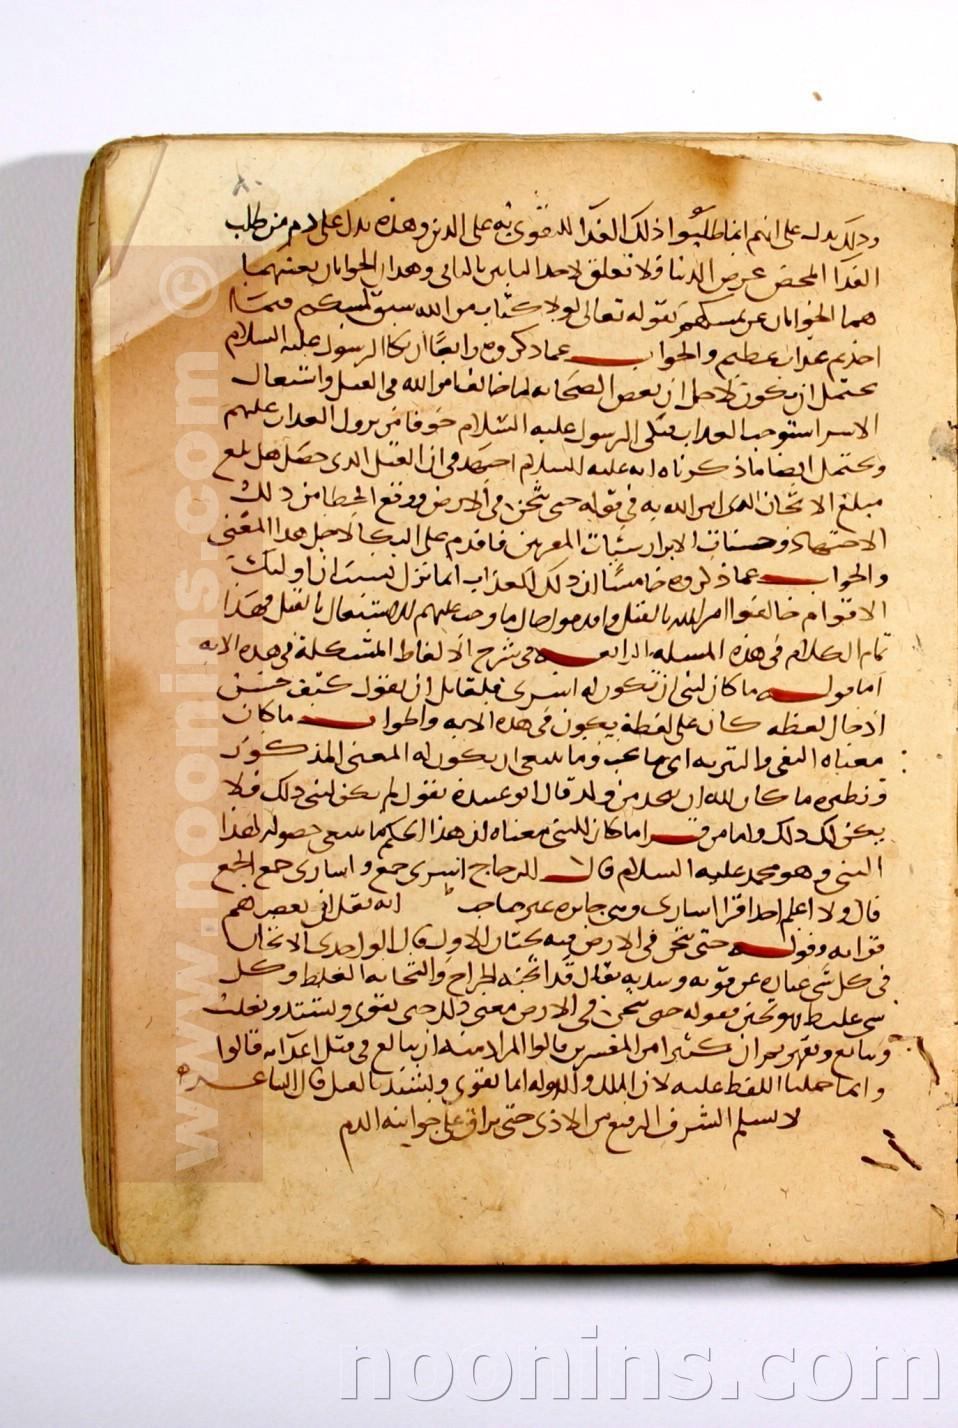 وذلك يدل على انهم انما طلبوا ذلك الفدا للتقوى به على الدين وهذه يدل على ذم من طلب
الفدا لمحض عرض الدنيا ولا تعلق لاحد البابين بالثاني وهذان الجوابان بعينهما
هما الجوابان عن تمسكهم بقوله تعالى لولا كتاب من الله سبق لمسكم فيما
اخذتم عذاب عظيم والجواب عما ذكروه رابعا ان بكا الرسول عليه السلام
يحتمل ان يكون لاجل ان بعض الصحابه لما خالف امر الله في القتل واشتغال
الاسر استوجب العذاب فبكى الرسول عليه السلام خوفا من نزول العذاب عليهم
ويحتمل ايضا ما ذكرناه انه عليه السلام اجتهد في ان القتل الذي حصل هل بلغ
مبلغ الاثخان الذي امر الله به في قوله حتى يثخن في الارض ووقع الخطا من ذلك
الاجتهاد وحسنات الابرار سيئات المقربين فاقدم على البكا لاجل هذا المعنى
والجواب عما ذكروه خامسا ان ذلك العذاب انما نزل بسبب ان اوليك
الاقوام خالفوا امر الله بالقتل واقدموا حال ما وجب عليهم الاشتغال بالقتل فهذا
تمام الكلام في هذه المسله الرابعه في شرح الالفاظ المشكلة في هذه الايه
اما قوله ما كان لنبي ان يكون له اسرى فلقايل ان يقول كيف حسن
ادخال لفظه كان على لفظة يكون في هذه الايه والجواب ما كان
معناه النفي والتنزيه اي ما يجب وما ينبغي ان يكون له المعنى المذكور
ونظيره ما كان لله ان يتخذ من ولد قال ابو عبيدة يقول لم يكن لنبي ذلك فلا
يكن لك ذلك واما من قرا ما كان للنبي معناه ان هذا الحكم ما ينبغي حصوله لهذا
النبي وهو محمد عليه السلام قال الزجاج اسرى جمع واسارى جمع الجمع
قال ولا اعلم احدا قرا اسارى وهي جايزه غير صاحب انه نقل ان بعضهم
قرا به وقوله حتى يثخن في الارض فيه بحثان الاول قال الواحدي الاثخان
في كل شي عباره عن قوته وشدته يقال قد اثخنه الجراح والثخانه الغلظ وكل
شي غليظ فهو ثخين فقوله حتى يثخن في الارض معنى ذلك حتى يقوى ويشتد ويغلب
ويبالغ ويقهر ثم ان كثيرا من المفسرين قالوا المراد منه ان يبالغ في قتل اعدآيه قالوا
وانما حملنا اللفظ عليه لان الملك والدوله انما تقوى وتشتد بالقتل قال الشاعر
لا يسلم الشرف الرفيع من الاذى حتى يراق على جوانبه الدم
www.noonins.com ©
noonins.com